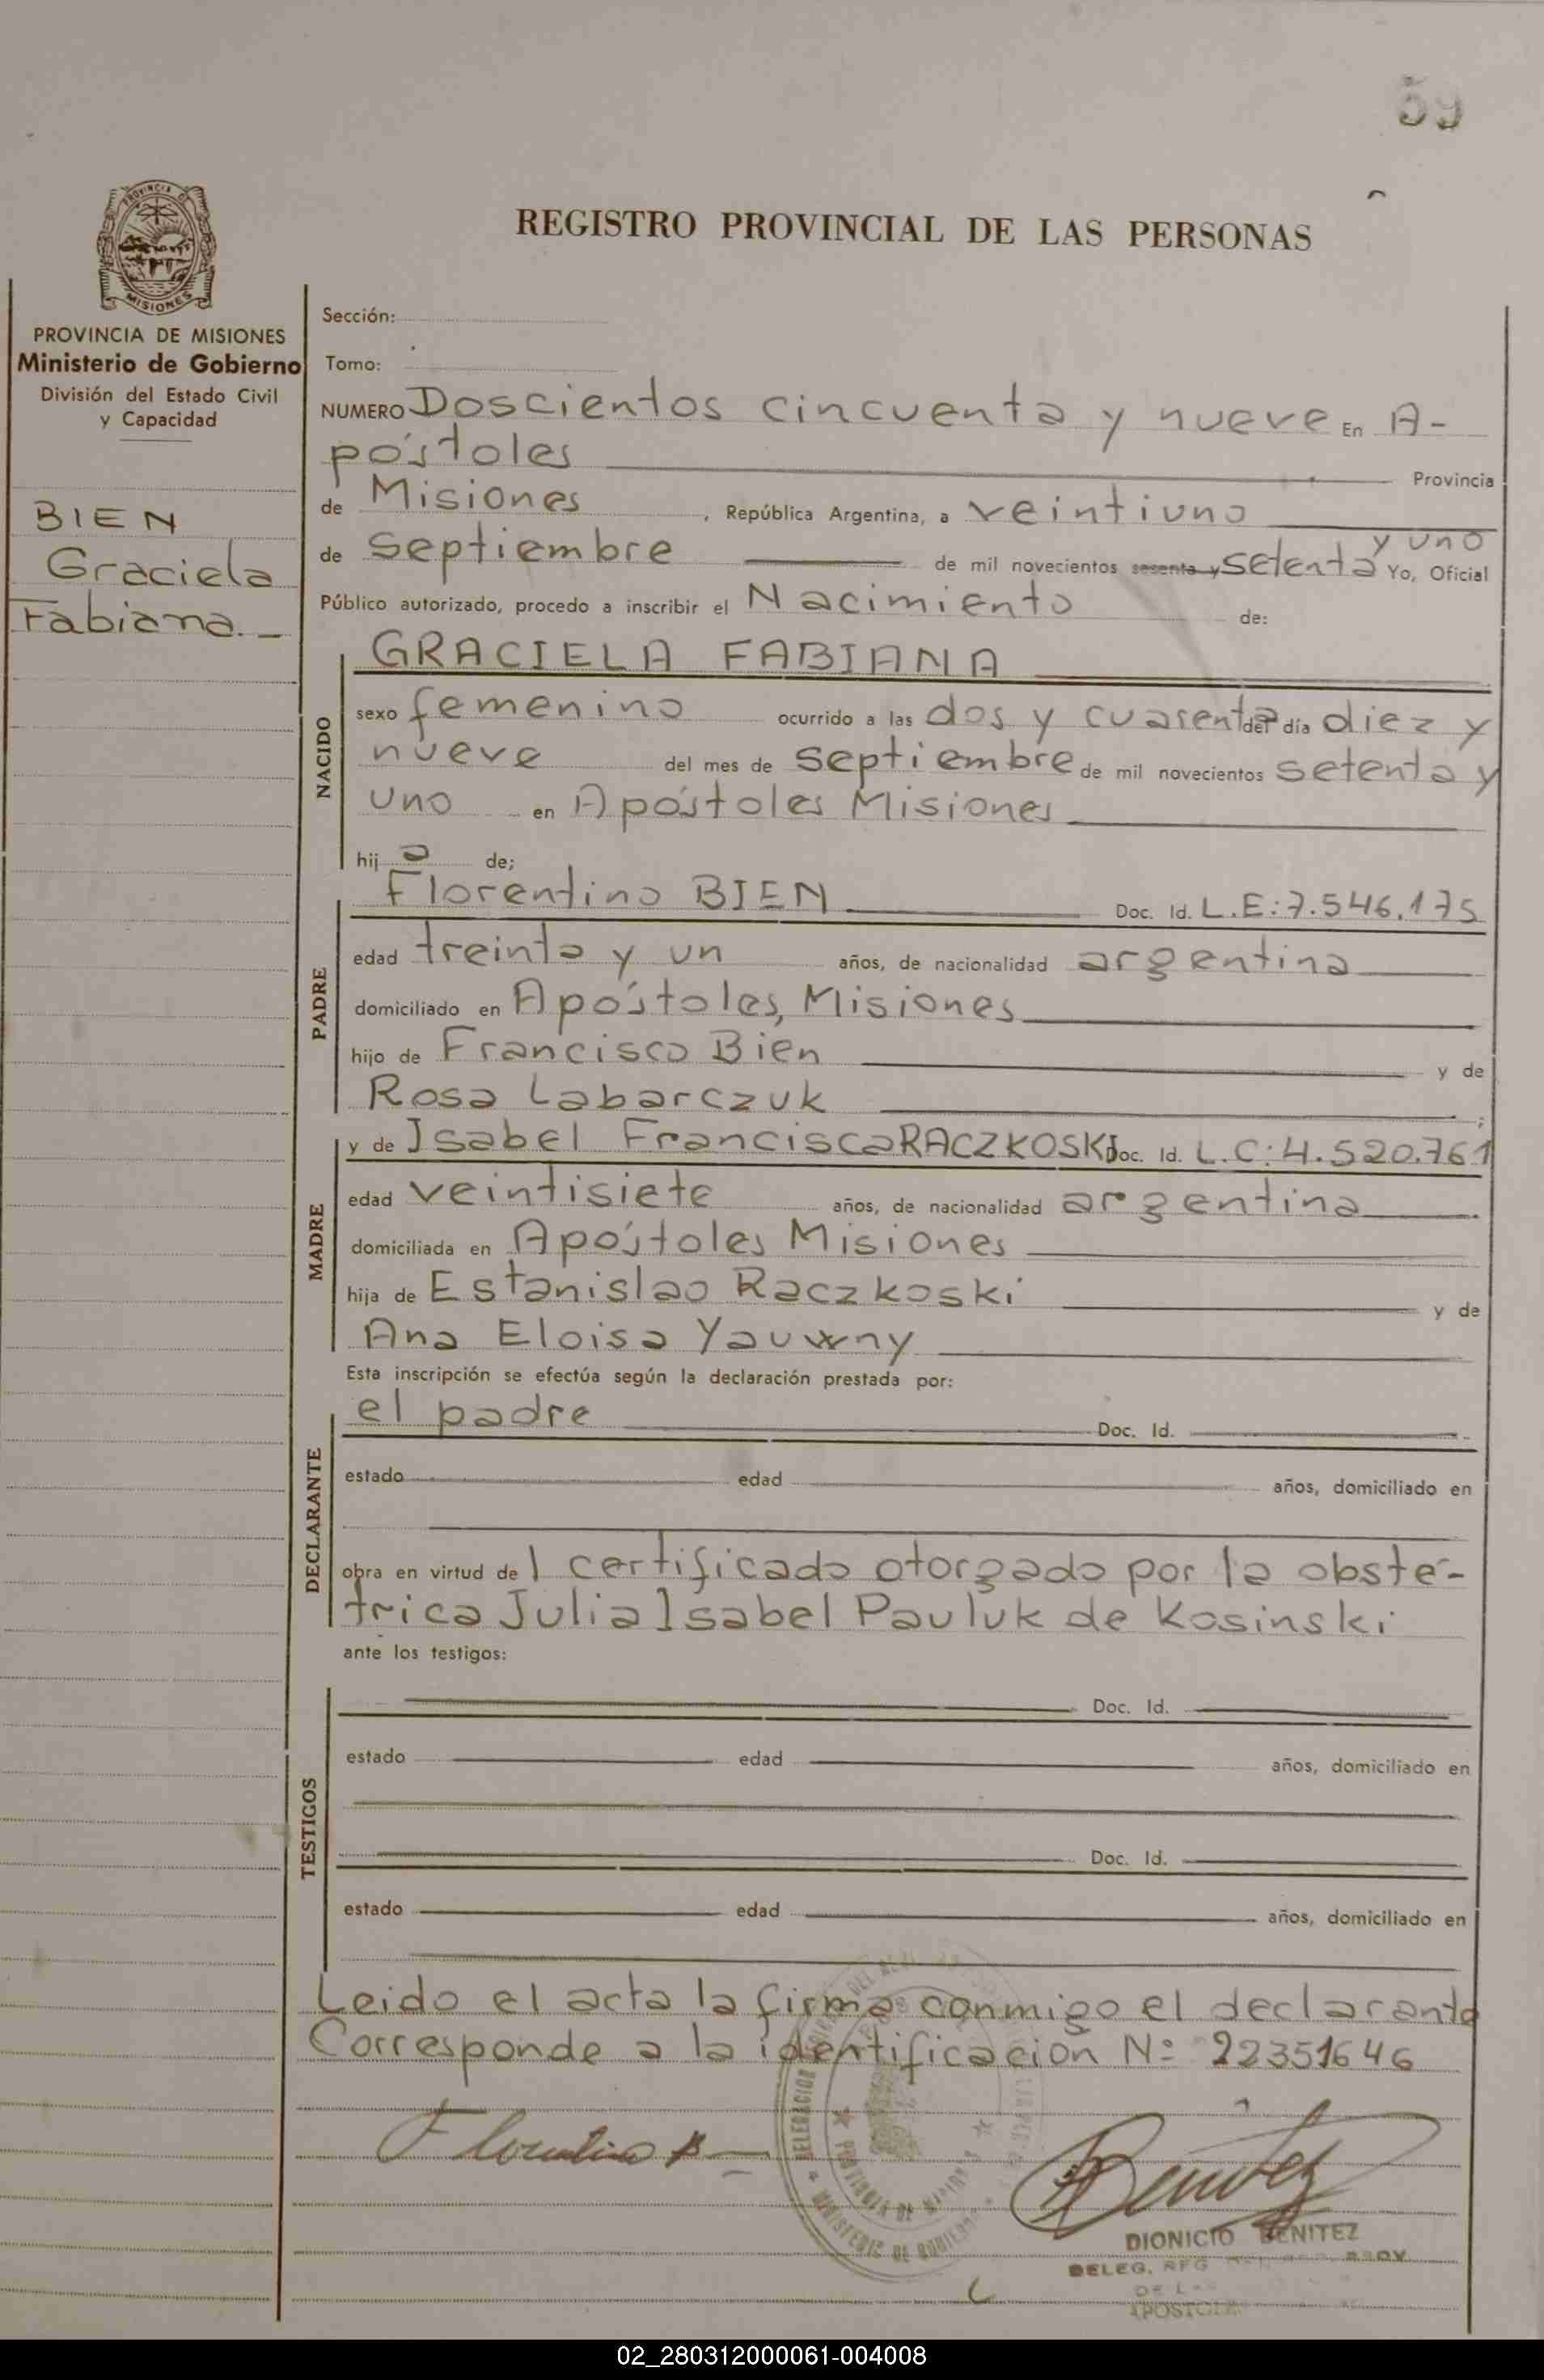 59
REGISTRO PROVINCIAL DE LAS PERSONAS
PROVINCIA DE MISIONES
Ministerio de Gobierno
División del Estado Civil
y Capacidad
BIEN
Graciela
Fabiana.-
Sección:
Tomo:
NUMERO Doscientos cincuenta y nueve En A-
póstoles Provincia
de Misiones, República Argentina, a veintiuno
de septiembre de mil novecientos sesenta y setenta y uno Yo, Oficial
Público autorizado, procedo a inscribir el Nacimiento de:
NACIDO
GRACIELA FABIANA
sexo femenino ocurrido a las dos y cuarenta del día diez y
nueve del mes de septiembre de mil novecientos setenta y
uno en Apóstoles Misiones
hija de;
PADRE
Florentino BIEN Doc. Id. L.E:7.546.175
edad treinta y un años, de nacionalidad argentina
domiciliado en Apóstoles, Misiones
hijo de Francisco Bien y de
Rosa Labarczuk;
MADRE
y de Isabel Francisca RACZKOSKI Doc. Id. L.C:4.520.761
edad veintisiete años, de nacionalidad argentina
domiciliada en Apóstoles Misiones
hija de Estanislao Raczkoski y de
Ana Eloisa Yauwny
Esta inscripción se efectúa según la declaración prestada por:
DECLARANTE
el padre Doc. Id.
estado edad años, domiciliado en
obra en virtud del certificado otorgado por la obsté-
trica Julia Isabel Pauluk de Kosinski
ante los testigos:
TESTIGOS
Doc. Id.
estado edad años, domiciliado en
Doc. Id.
estado edad años, domiciliado en
Leido el acta la firma conmigo el declarante
Corresponde a la identificación Nº 22351646
Florentino B
Benitez
DIONICIO BENITEZ
DELEG. REG
APOSTOLES
02_280312000061-004008